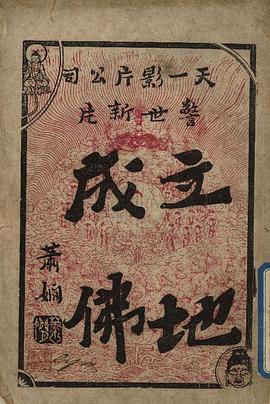 天一影片公司
警世新片
立地
成佛
蕭嫻